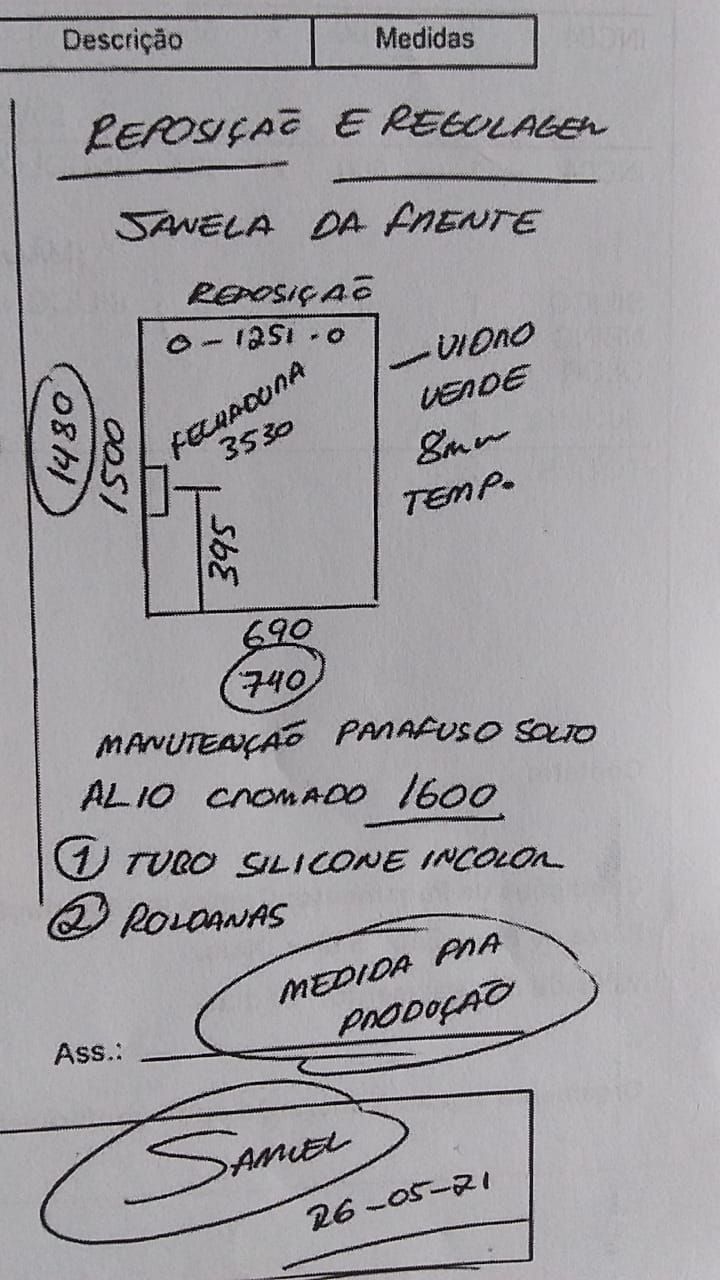 Descrição
Medidas
REPOSIÇAÕ E REGULAGEM
JANELA DA FRENTE
REPOSIÇAÕ
0-1251-0
FECHADURA
3530
1480
1500
395
690
740
VIDRO
VERDE
8mm
TEMP.
MANUTENÇÃO PARAFUSO SOLTO
CROMADO 1600
1 TUBO SILICONE INCOLOR
2 ROLDANAS
MEDIDA PRA
PRODUÇÃO
Ass.:
SAMUEL
26-05-21